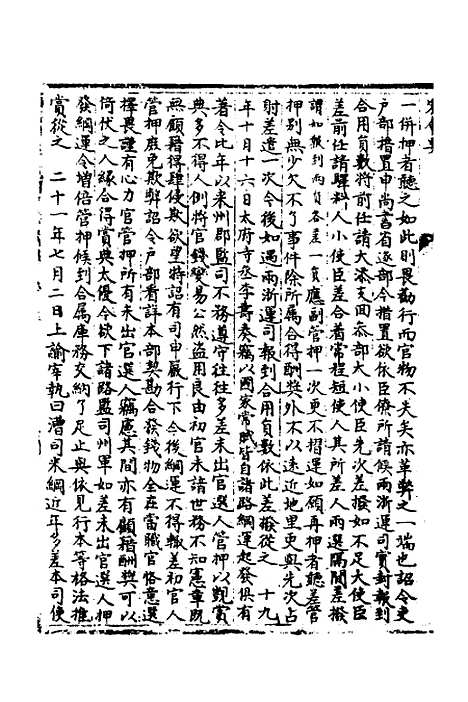 一併押者聽之如此則畏勸行而官物不失矣亦革弊之一端也詔令吏
户部措置申尚書省逐部今措置欲依臣僚所請候兩浙運司實封報到
合用負數將前任請大添支面叅部大小使臣先次差撥如不足大使臣
差前任請驛料人小使臣差合着常程短使人其所差人兩選隔間差撥
謂如報到兩負各差一負應副管押一次更不摺運如願再押者聽差管
押别無少欠不了事件除所属合得酬奬外不以遠近地里更與先次占
射差遣一次今後如遇兩浙運司報到合用負數依此差撥從之　十九
年十月十六日太府寺丞李濤奏竊以國家常賦皆自諸路綱運起發俱有
著令比年以来州郡監司不務遵守往往多差未出官選人管押以覬賞
典多不得人倒將官錢變易公然盗用良由初官未諳世務不知憲章既
無顧藉得肆侵欺欲望特詔有司申嚴行下今後綱運不得輙差初官人
管押庶免欺弊詔令户部看詳本部契勘合發錢物全在當職官恪意選
擇畏謹有心力官管押所有未出官選人竊慮其間亦有顧藉酬奬可以
倚仗之人緣合得賞典太優今欲下諸路監司州軍如差未出官選人押
發綱運令増倍管押候到合属庫務交納了足止與依見行本等格法推
賞從之　二十一年七月二日上諭宰執曰漕司米綱近年多差本司使